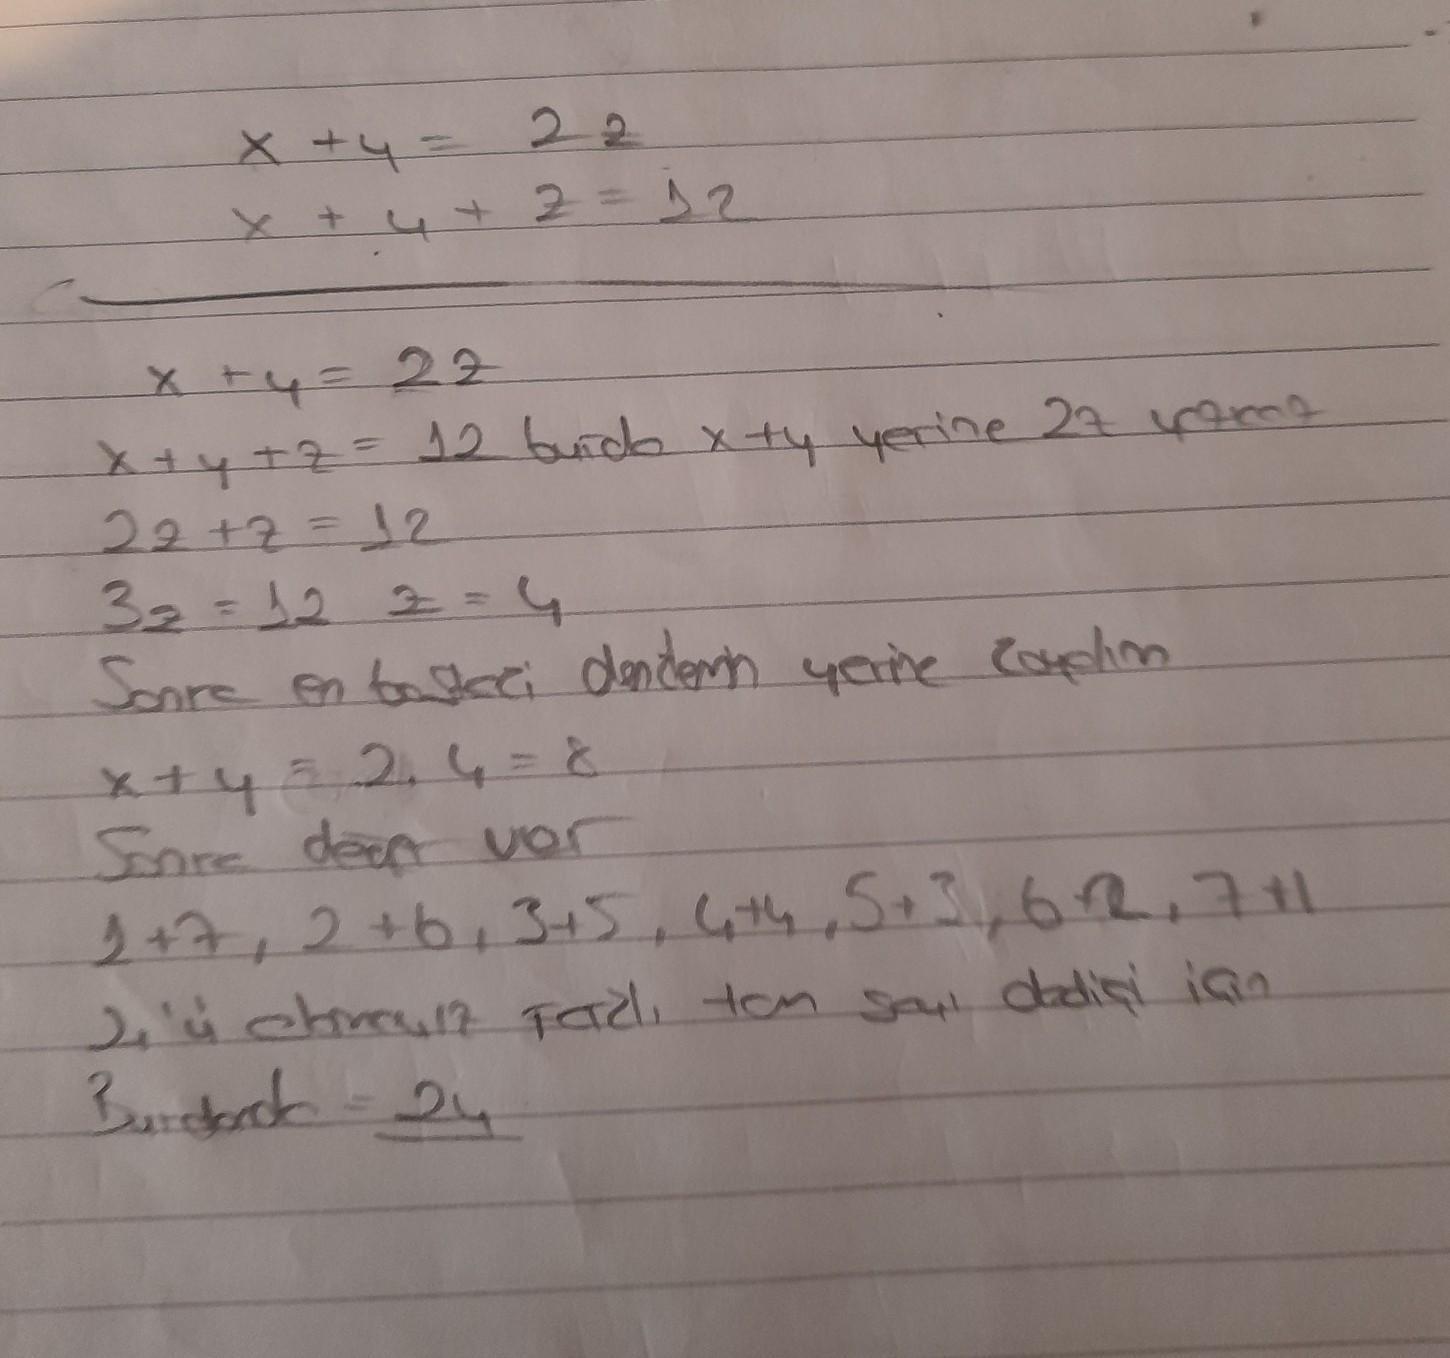 x + y = 2z
x + y + z = 12
x + y = 2z
x + y + z = 12 burda x+y yerine 2z yazarız
2z + z = 12
3z = 12 z = 4
Sonra en baştaki denklemin yerine koyalım
x + y = 2. 4 = 8
Sonra değer var
1+7, 2+6, 3+5, 4+4, 5+3, 6+2, 7+1
almayız farklı tam sayı dediği için
= 24